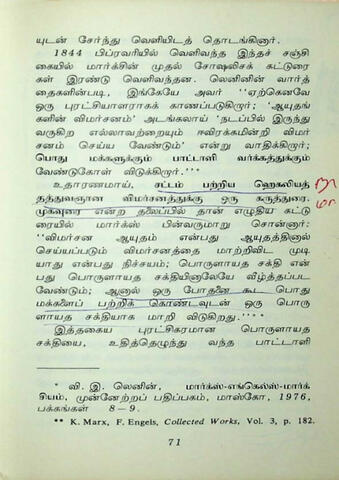 யுடன் சேர்ந்து வெளியிடத் தொடங்கினார்.
1844 பிப்ரவரியில் வெளிவந்த இந்தச் சஞ்சி
கையில் மார்க்சின் முதல் சோஷலிசக் கட்டுரை
கள் இரண்டு வெளிவந்தன. லெனினின் வார்த்
தைகளின்படி, இங்கேயே அவர் ''ஏற்கெனவே
ஒரு புரட்சியாளராகக் காணப்படுகிறார்; 'ஆயுதங்
களின் விமர்சனம்' அடங்கலாய் 'நடப்பில் இருந்து
வருகிற எல்லாவற்றையும் ஈவிரக்கமின்றி விமர்
சனம் செய்ய வேண்டும்' என்று வாதிக்கிறார்;
பொது மக்களுக்கும் பாட்டாளி வர்க்கத்துக்கும்
வேண்டுகோள் விடுக்கிறார்.''*
உதாரணமாய், சட்டம் பற்றிய ஹெகலியத்
தத்துவஞான விமர்சனத்துக்கு ஒரு கருத்துரை.
முகவுரை என்ற தலைப்பில் தான் எழுதிய கட்டு
ரையில் மார்க்ஸ் பின்வருமாறு சொன்னார்:
''விமர்சன ஆயுதம் என்பது ஆயுதத்தினால்
செய்யப்படும் விமர்சனத்தை மாற்றிவிட முடி
யாது என்பது நிச்சயம்; பொருளாயத சக்தி என்
பது பொருளாயத சக்தியினாலேயே வீழ்த்தப்பட
வேண்டும்; ஆனால் ஒரு போதனை கூட பொது
மக்களைப் பற்றிக் கொண்டவுடன் ஒரு பொரு
ளாயத சக்தியாக மாறி விடுகிறது.''**
இத்தகைய புரட்சிகரமான பொருளாயத
சக்தியை, உதித்தெழுந்து வந்த பாட்டாளி
* வி. இ. லெனின், மார்க்ஸ்-எங்கெல்ஸ்-மார்க்
சியம், முன்னேற்றப் பதிப்பகம், மாஸ்கோ, 1976,
பக்கங்கள் 8—9.
** K. Marx, F. Engels, Collected Works, Vol. 3, p. 182.
71